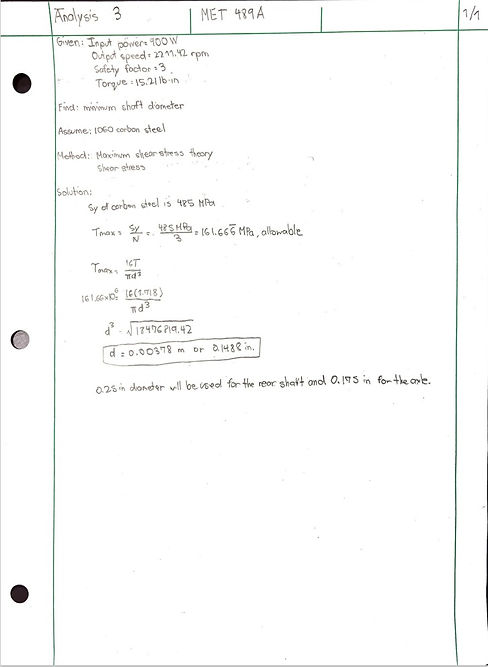 Analysis 3 MET 489A 1/1
Given: Input power = 400 W
Output speed = 2211.42 rpm
Safety factor = 3
Torque = 15.21 lb·in
Find: minimum shaft diameter
Assume: 1060 carbon steel
Method: Maximum shear stress theory
Shear stress
Solution:
Sy of carbon steel is 485 MPa
Tmax = Sy/N = 485 MPa/3 = 161.666̅ MPa, allowable
Tmax = 16T/πd³
161.66x10⁶ = 16(1.718)/πd³
d = 0.00378 m or 0.1488 in.
0.25 in diameter will be used for the rear shaft and 0.175 in for the axle.